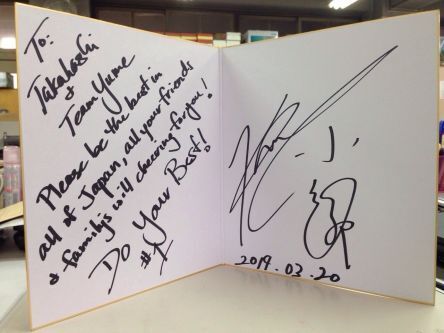 To:
Takahashi
&
Team Yume
Please be the best in
all of Japan, all your friends
& familys will cheering for you!
Do Your Best!
#1
2019.03.20